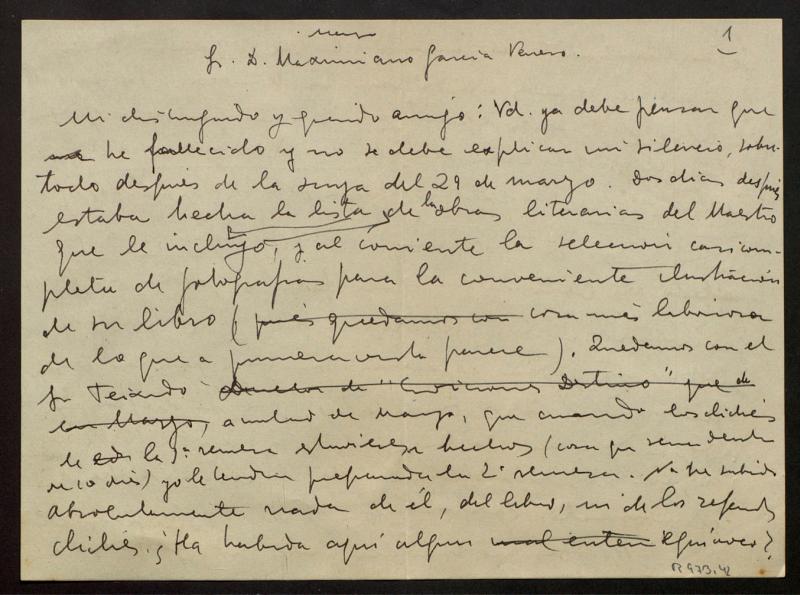 1
Sr. D. Maximiano García Venero.
Mi distinguido y querido amigo: Vd. ya debe pensar que
he fallecido y no se debe explicar mi silencio, sobre-
todo después de la suya del 29 de marzo. Dos días después
estaba hecha la lista de las obras literarias del Maestro
que le incluyo, y al corriente la selección casi com-
pleta de fotografías para la conveniente ilustración
de su libro (pués quedamos con cosa más laboriosa
de lo que a primera vista parece). Quedamos con el
Sr. Teixidó Director de "Ediciones Destino" que de
en Marzo, a mitad de mayo, que cuando los clichés
de la 1ª remesa estuviesen hechos (cosa que sería dentro
de 10 días) yo le tendría preparada la 2ª remesa. No he sabido
absolutamente nada de él, del libro, ni de los referidos
clichés. ¿Ha habido aquí algun mal enten equívoco?
R 973.42